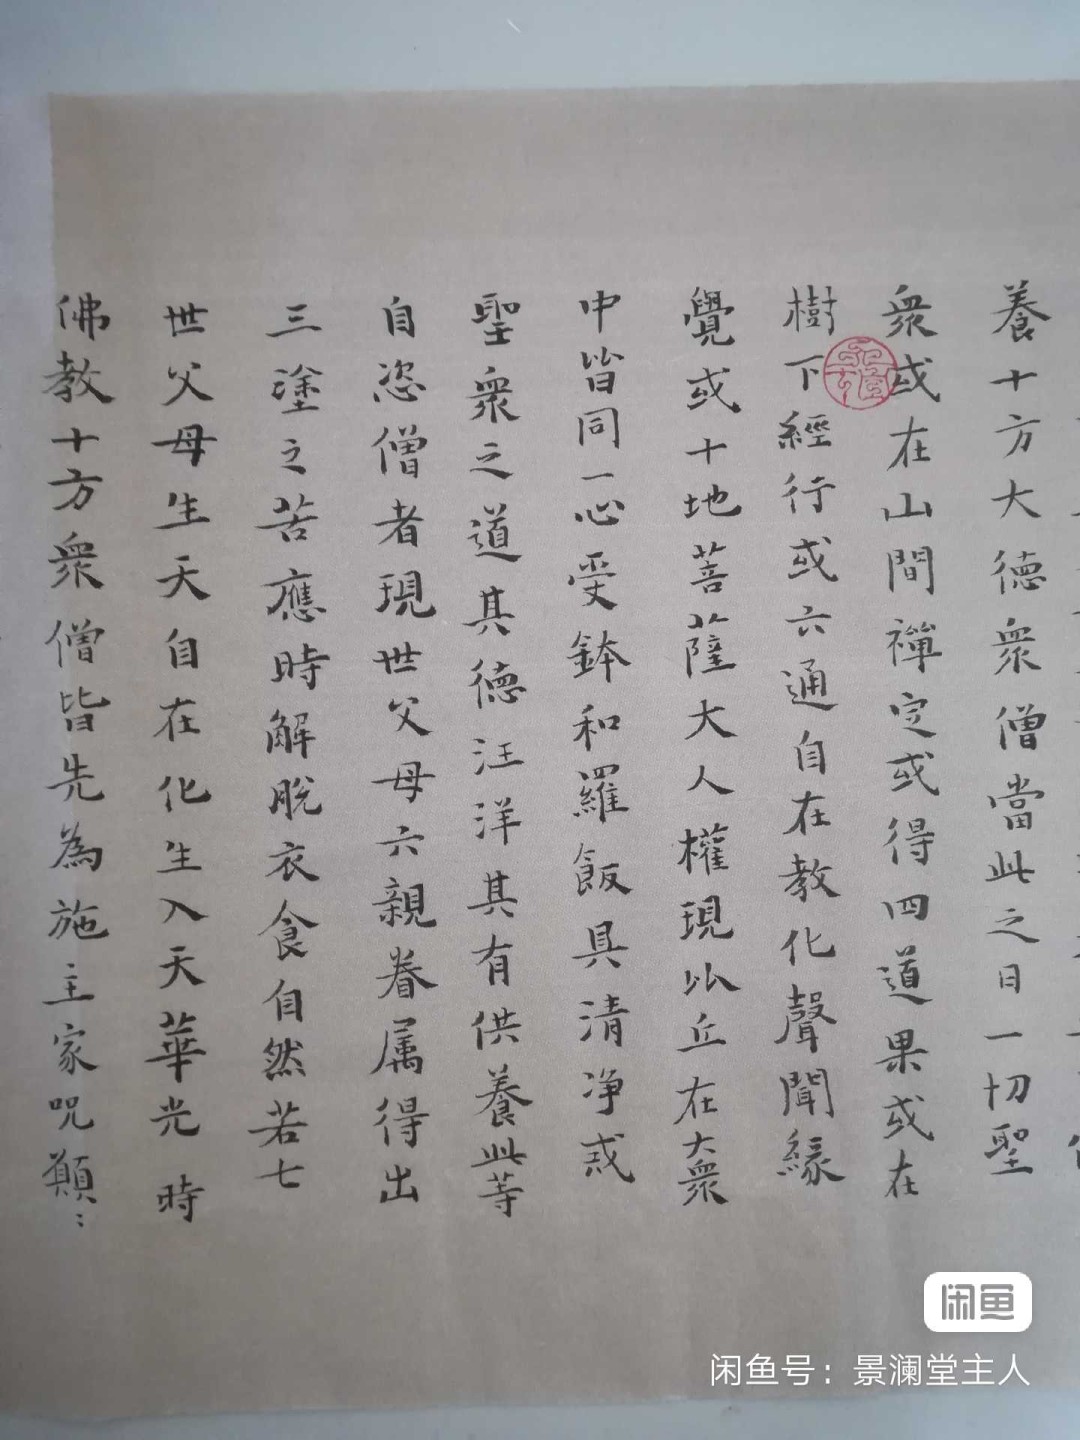 養十方大德衆僧當此之日一切聖
衆或在山間禪定或得四道果或在
樹下經行或六通自在教化聲聞緣
覺或十地菩薩大人權現比丘在大衆
中皆同一心受鉢和羅飯具清净戒
聖衆之道其德汪洋其有供養此等
自恣僧者現世父母六親眷属得出
三塗之苦應時解脫衣食自然若七
世父母生天自在化生入天華光 時
佛教十方衆僧皆先為施主家呪願:
闲鱼
闲鱼号：景澜堂主人